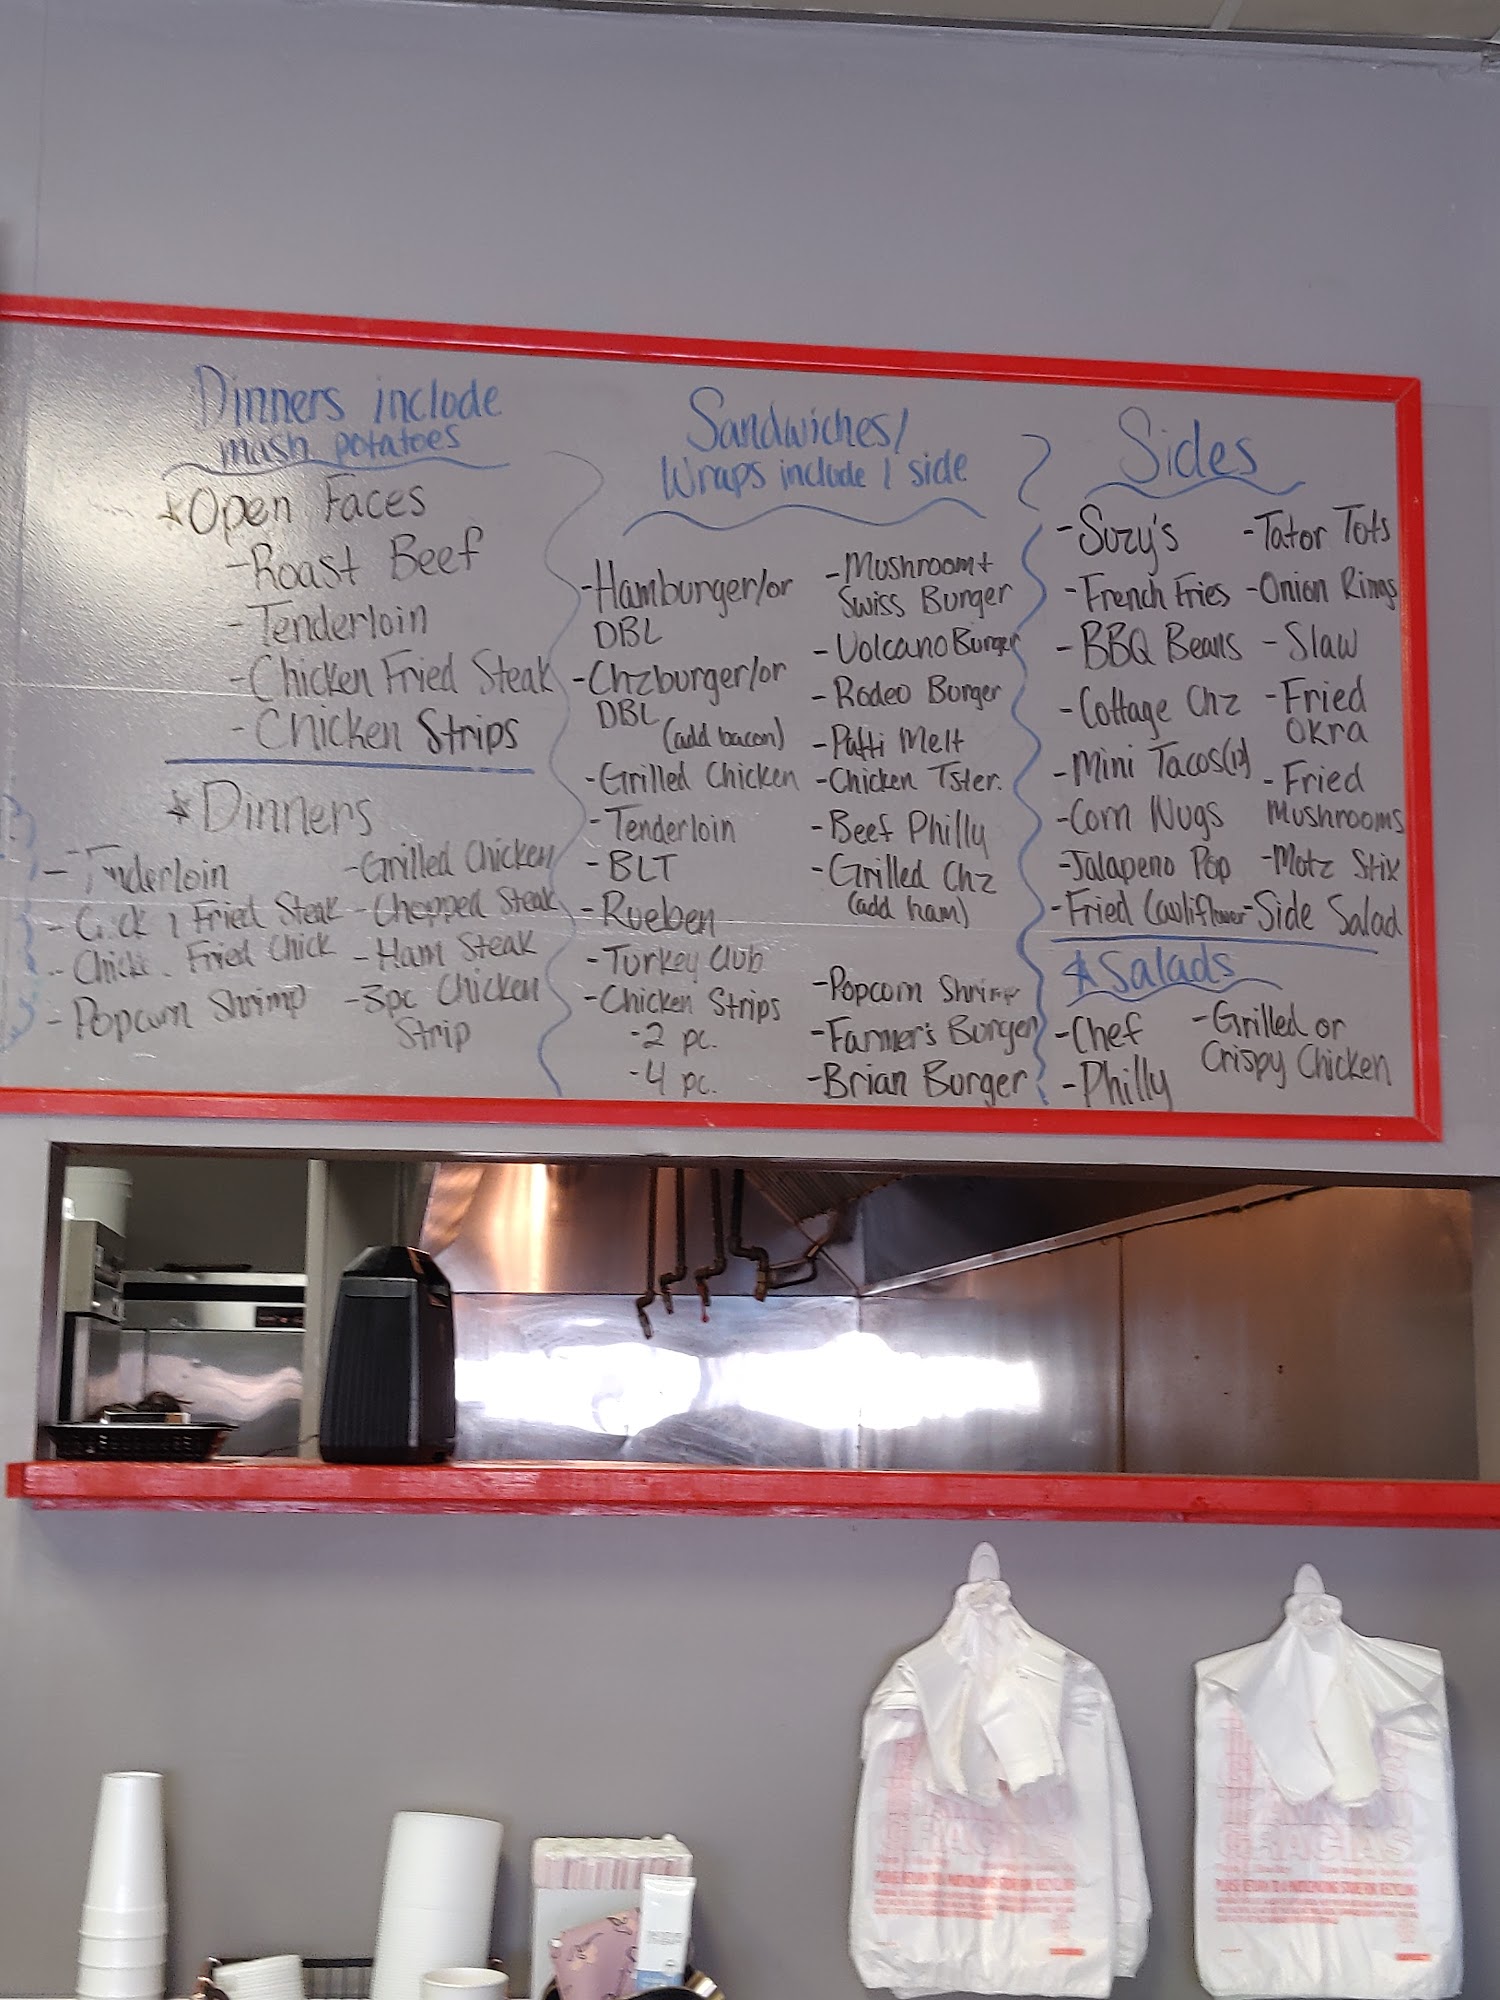 Dinners include
mash potatoes
Open Faces
-Roast Beef
-Tenderloin
-Chicken Fried Steak
-Chicken Strips
Dinners
-Tenderloin
- Fried Steak
- Fried Chick
-Popcurn Shrimp
-Grilled Chicken
-Chopped Steak
-Ham Steak
-3pc Chicken
Strip
Sandwiches/
Wraps include 1 side
-Hamburger/or
DBL
-Chzburger/or
DBL
(add bacon)
-Grilled Chicken
-Tenderloin
-BLT
-Rueben
-Turkey Club
-Chicken Strips
-2 pc.
-4 pc.
-Mushroom+
Swiss Burger
-Volcano Burger
-Rodeo Burger
-Patti Melt
-Chicken Tster.
-Beef Philly
-Grilled Chz
(add ham)
-Popcorn Shrimp
-Farmer's Burger
-Brian Burger
Sides
-Suzy's
-French Fries
-BBQ Beans
-Cottage Chz
-Mini Tacos(12)
-Corn Nugs
-Jalapeno Pop
-Fried Cauliflower
-Tator Tots
-Onion Rings
-Slaw
-Fried
Okra
-Fried
Mushrooms
-Motz Stix
-Side Salad
Salads
-Chef
-Philly
-Grilled or
Crispy Chicken
GRACIAS
GRACIAS